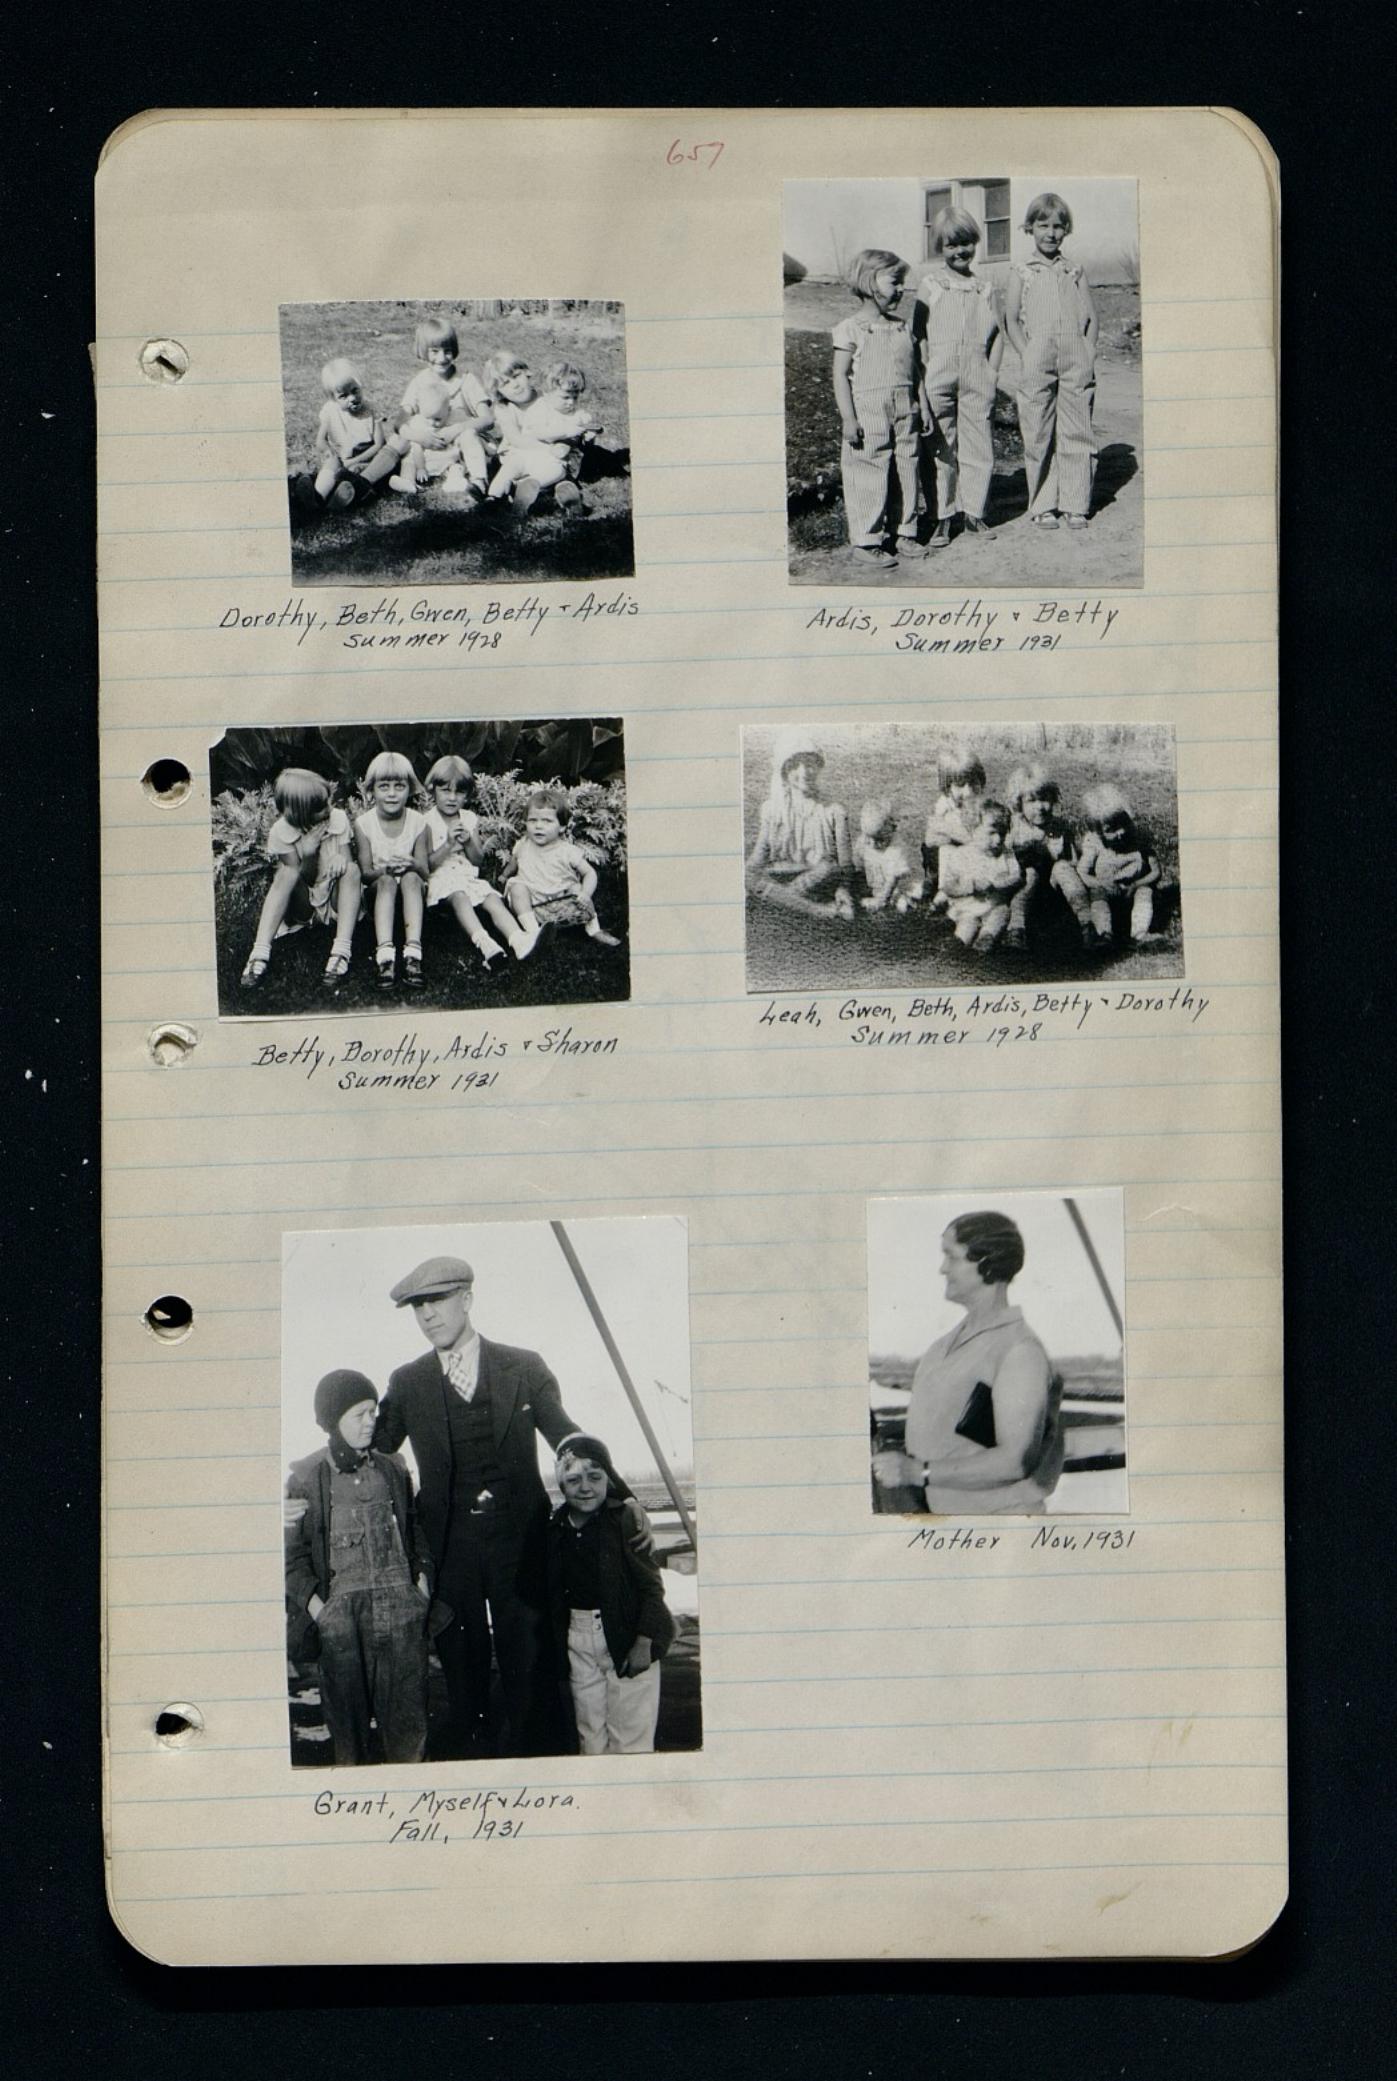 657
Dorothy, Beth, Gwen, Betty & Ardis
Summer 1928
Ardis, Dorothy & Betty
Summer 1931
Betty, Dorothy, Ardis & Sharon
Summer 1931
Leah, Gwen, Beth, Ardis, Betty & Dorothy
Summer 1928
Mother Nov. 1931
Grant, Myself & Lora.
Fall, 1931